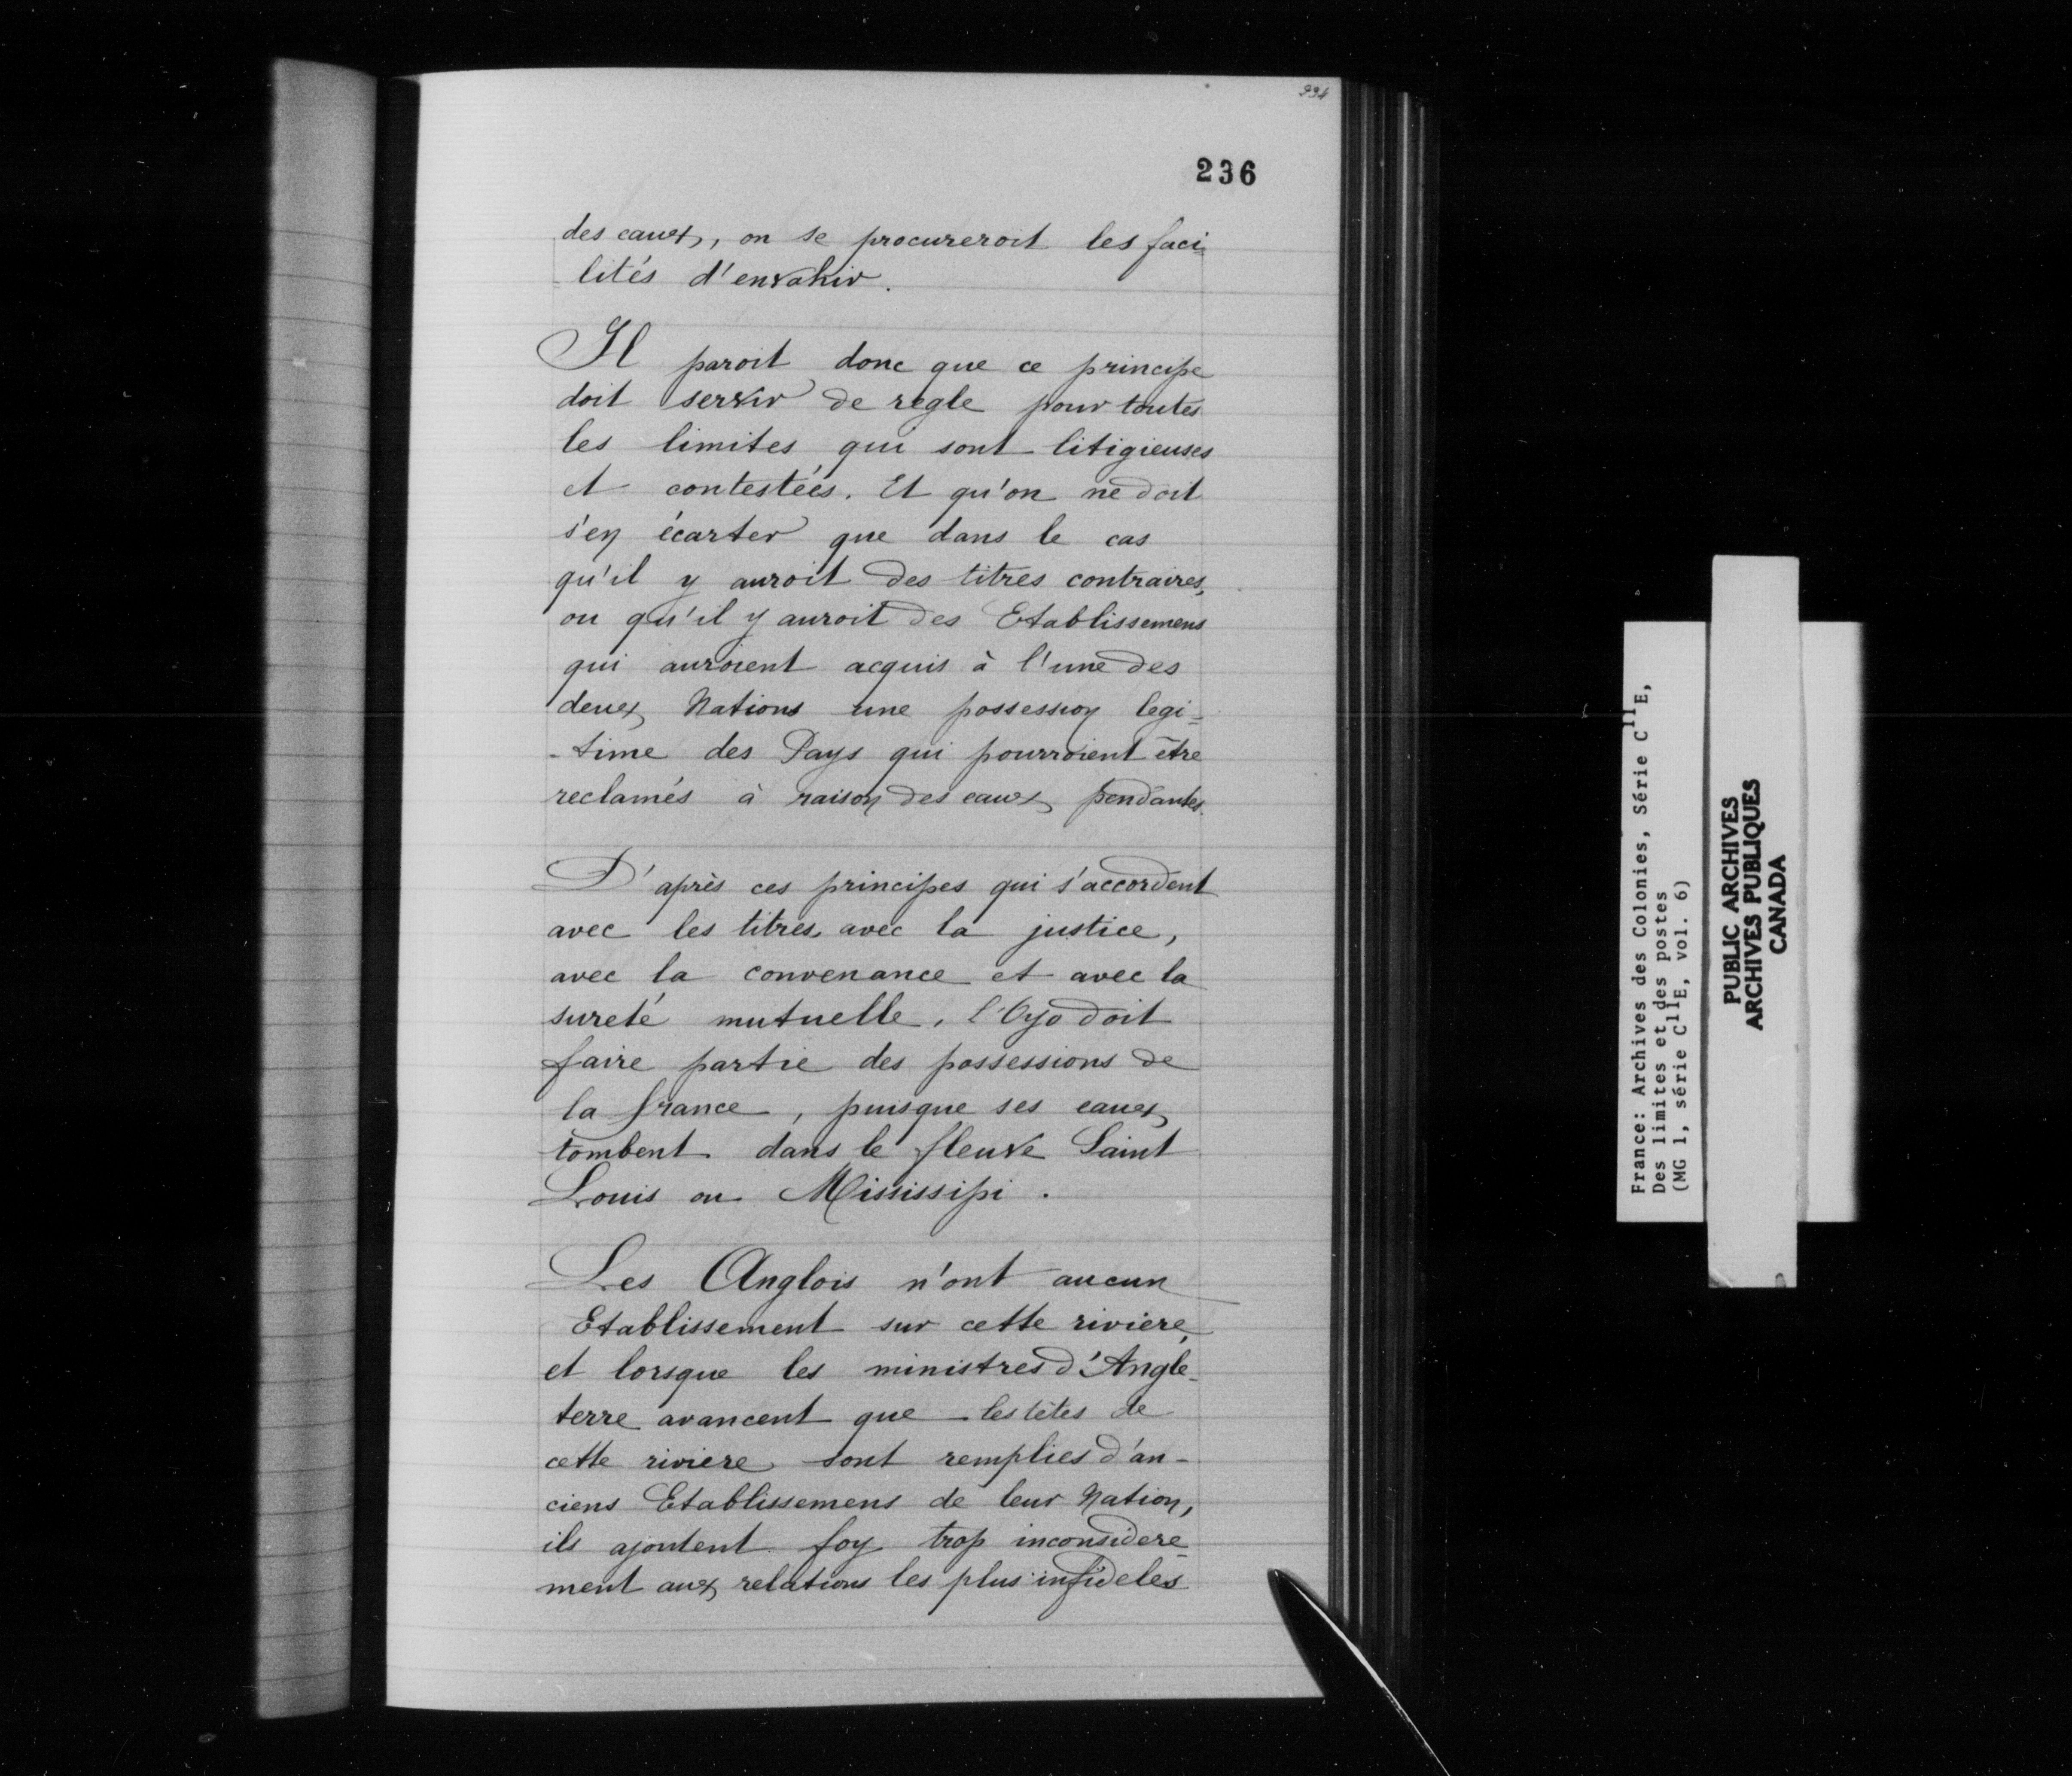 994
236
des eaux, on se procureroit les faci=
lités d'envahir.
Il paroit donc que ce principe
doit servir de regle pour toutes
les limites qui sont litigieuses
et contestées. Et qu'on ne doit
s'en écarter que dans le cas
qu'il y auroit des titres contraires,
ou qu'il y auroit des Etablissemens
qui auroient acquis à l'une des
deux Nations une possession legi=
-time des Pays qui pourroient être
reclamés à raison des eaux pendantes.
D'après ces principes qui s'accordent
avec les titres, avec la justice,
avec la convenance et avec la
sureté mutuelle, l'Oyo doit
faire partie des possessions de
la france, puisque ses eaux
tombent dans le fleuve Saint
Louis ou Mississipi.
Les Anglois n'ont aucun
Etablissement sur cette riviere,
et lorsque les ministres d'Angle-
terre avancent que les têtes de
cette riviere sont remplies d'an-
ciens Etablissemens de leur Nation,
ils ajoutent foy trop inconsidere-
ment aux relations les plus infideles
France: Archives des Colonies, Série C11E,
Des limites et des postes
(MG 1, série C11E, vol. 6)
PUBLIC ARCHIVES
ARCHIVES PUBLIQUES
CANADA